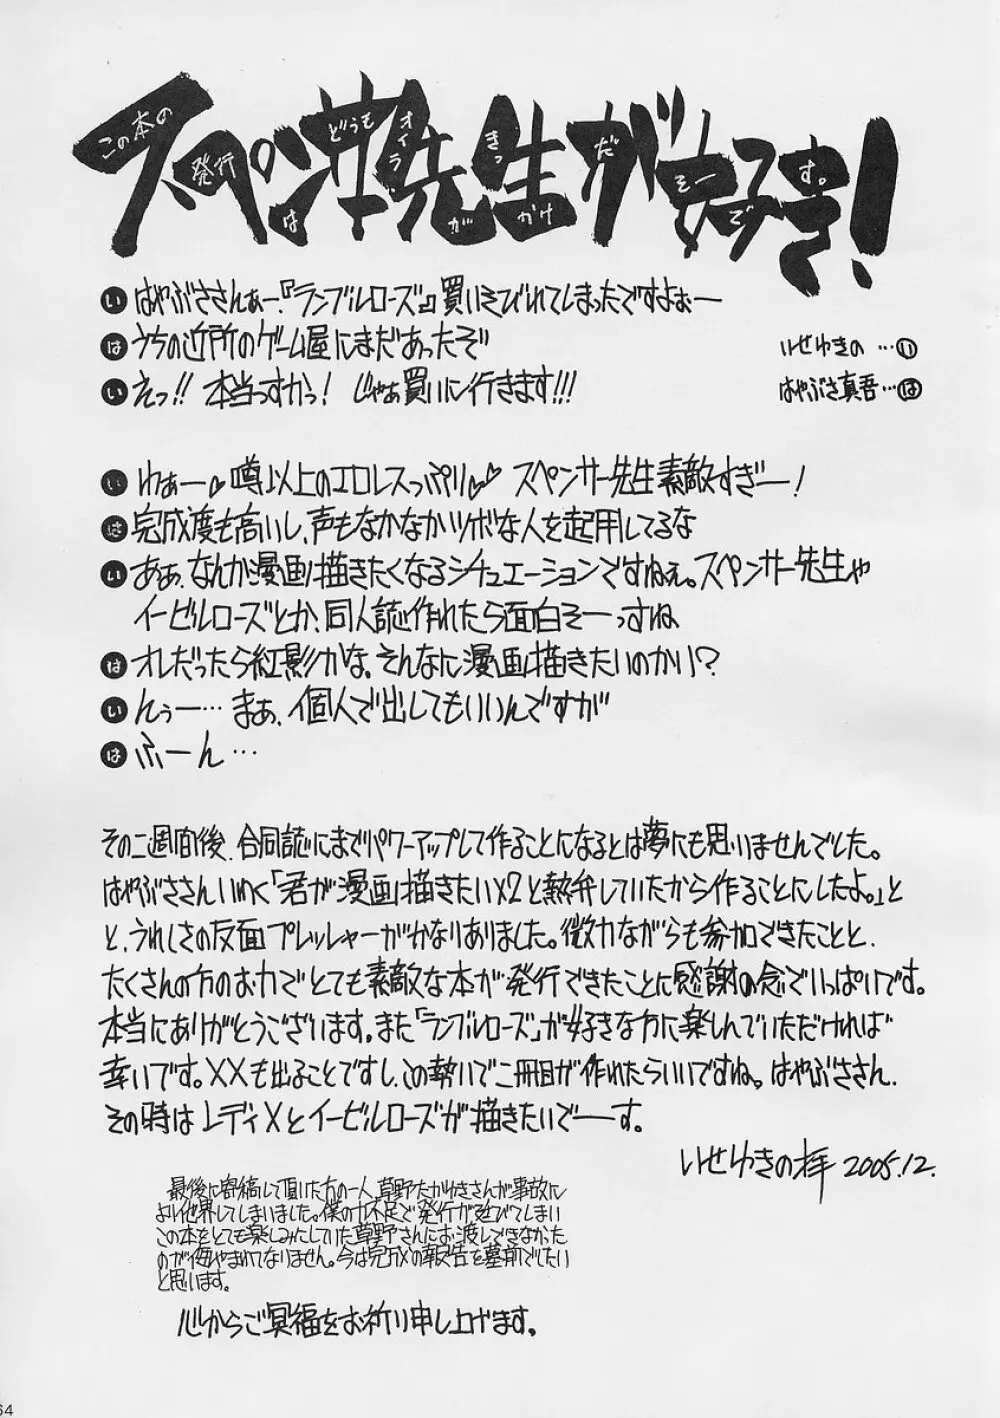 スペンサー先生が好き!
この本の発行はどうもオイラがきっかけだそーです。
い はやぶささんぁー、『ランブルローズ』買いそびれてしまったですよぉー
は うちの近所のゲーム屋にまだあったぞ
い えっ!! 本当っスか! じゃぁ買いに行きます!!!
いせゆきの…い
はやぶさ真吾…は
い わぁー♥噂以上のエロレスっぷり♥♥ スペンサー先生素敵すぎー!
は 完成度も高いし、声もなかなかツボな人を起用してるな
い あぁ、なんか漫画描きたくなるシチュエーションですねぇ。スペンサー先生や
イービルローズとか、同人誌作れたら面白そーっすね
は オレだったら紅影かな。そんなに漫画描きたいのかい?
い んぅー… まぁ、個人で出してもいいんですが
は ふーん…
その二週間後、合同誌にまでパワーアップして作ることになるとは夢にも思いませんでした。
はやぶささんいわく「君が漫画描きたい×2と熱弁していたから作ることにしたよ。」と
と、うれしさの反面プレッシャーがかなりありました。微力ながらも参加できたことと、
たくさんの方のお力でとても素敵な本が発行できたことに感謝の念でいっぱいです。
本当にありがとうございます。また「ランブルローズ」が好きな方に楽しんでいただければ
幸いです。XXも出ることですし、この勢いで二冊目が作れたらいいですね。はやぶささん、
その時はレディXとイービルローズが描きたいでーす。
いせゆきの拝 2005.12.
最後に寄稿して頂いた方の一人、草野たかゆきさんが事故に
より他界してしまいました。僕の力不足で発行が延びてしまい
この本をとても楽しみにしていた草野さんにお渡しできなかった
のが悔やまれてなりません。今は完成の報告を墓前でしたい
と思います。
心からご冥福をお祈り申し上げます。
64